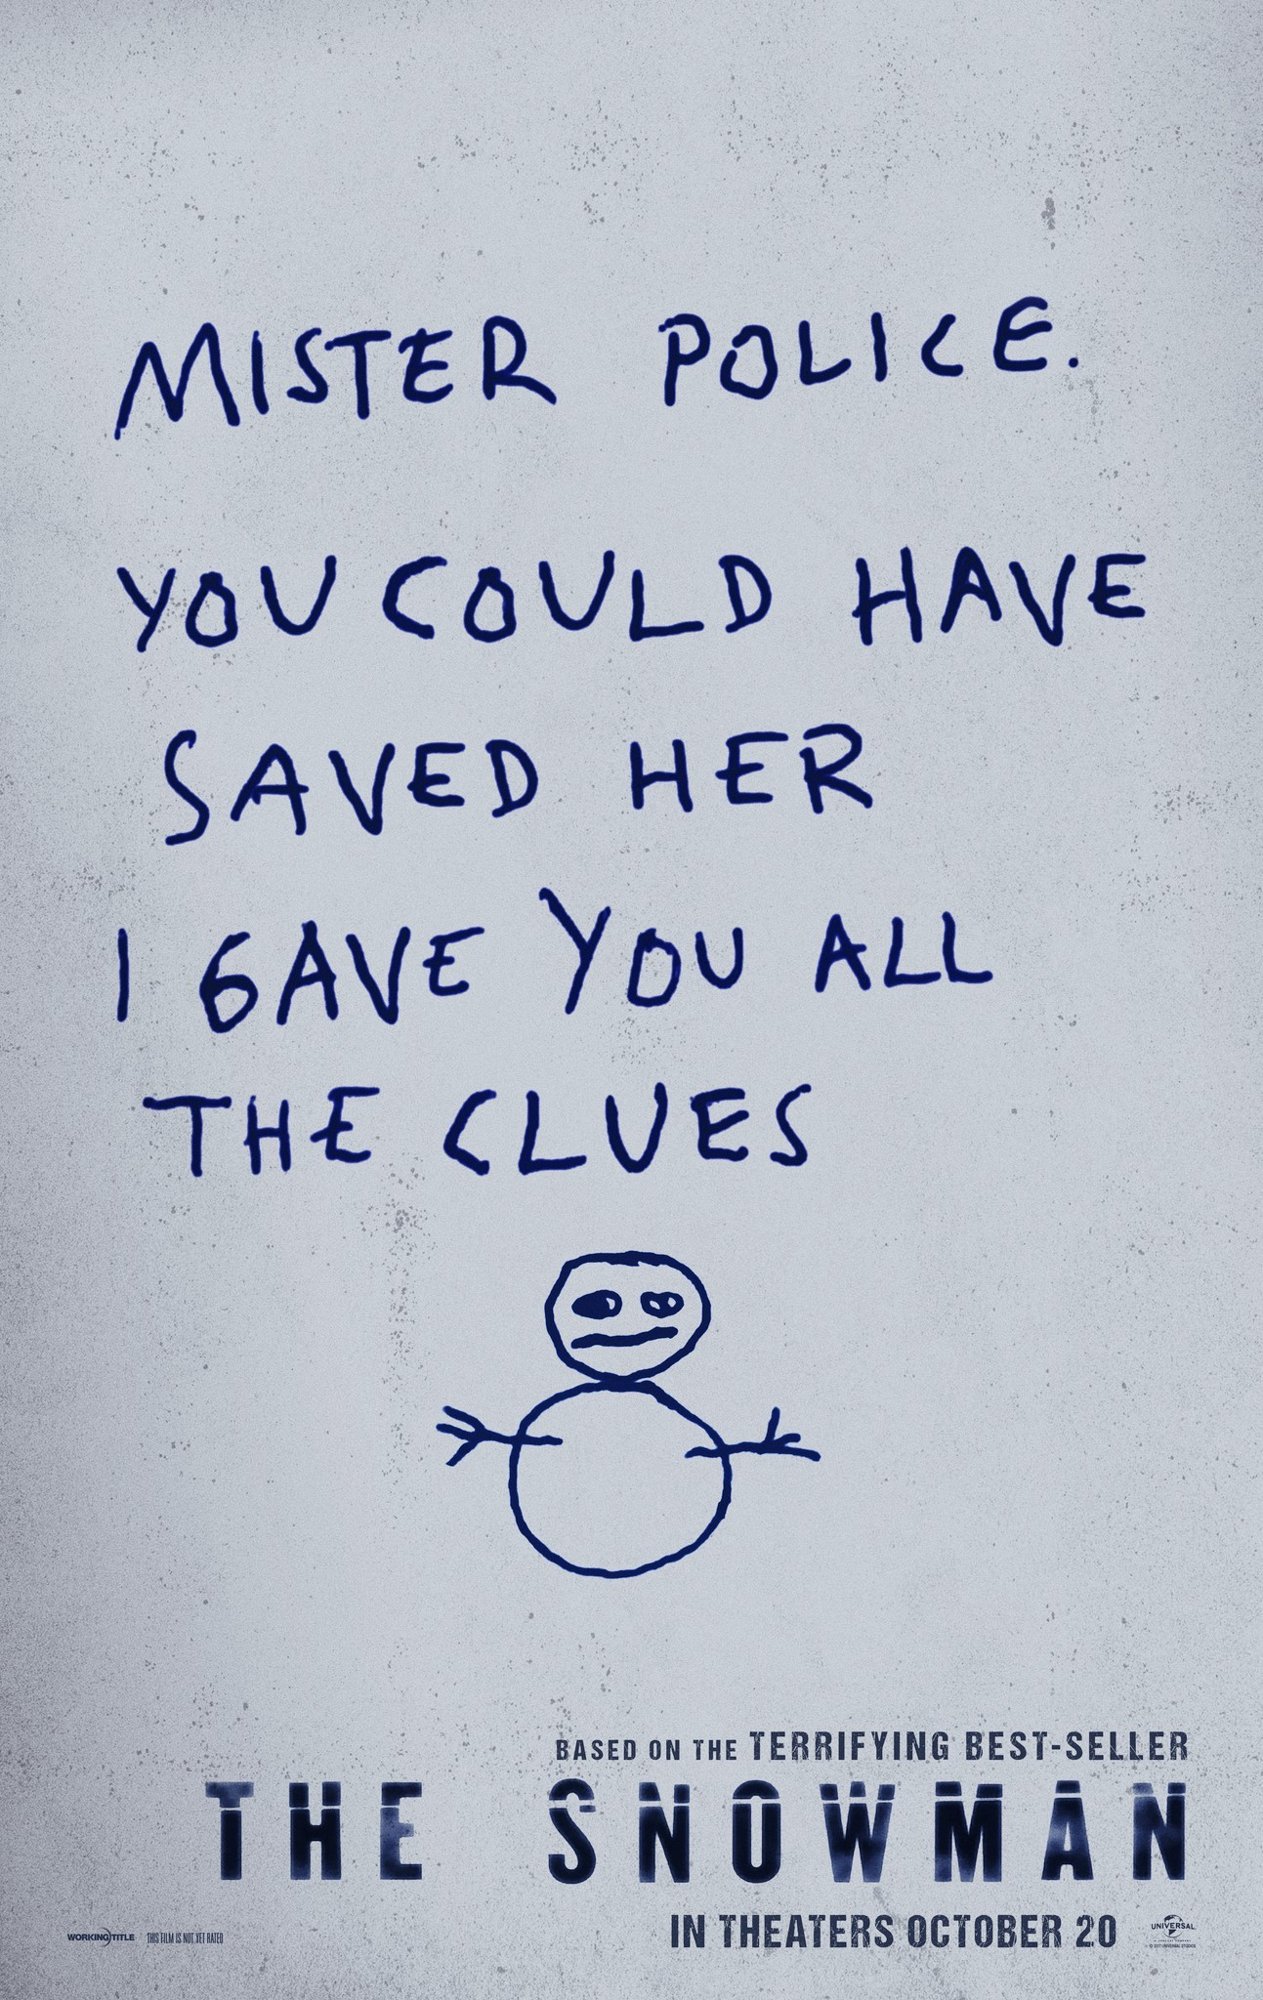 MISTER POLICE.
YOU COULD HAVE
SAVED HER
I GAVE YOU ALL
THE CLUES
BASED ON THE TERRIFYING BEST-SELLER
THE SNOWMAN
IN THEATERS OCTOBER 20
WORKING TITLE THIS FILM IS NOT YET RATED
UNIVERSAL
© 2017 UNIVERSAL STUDIOS